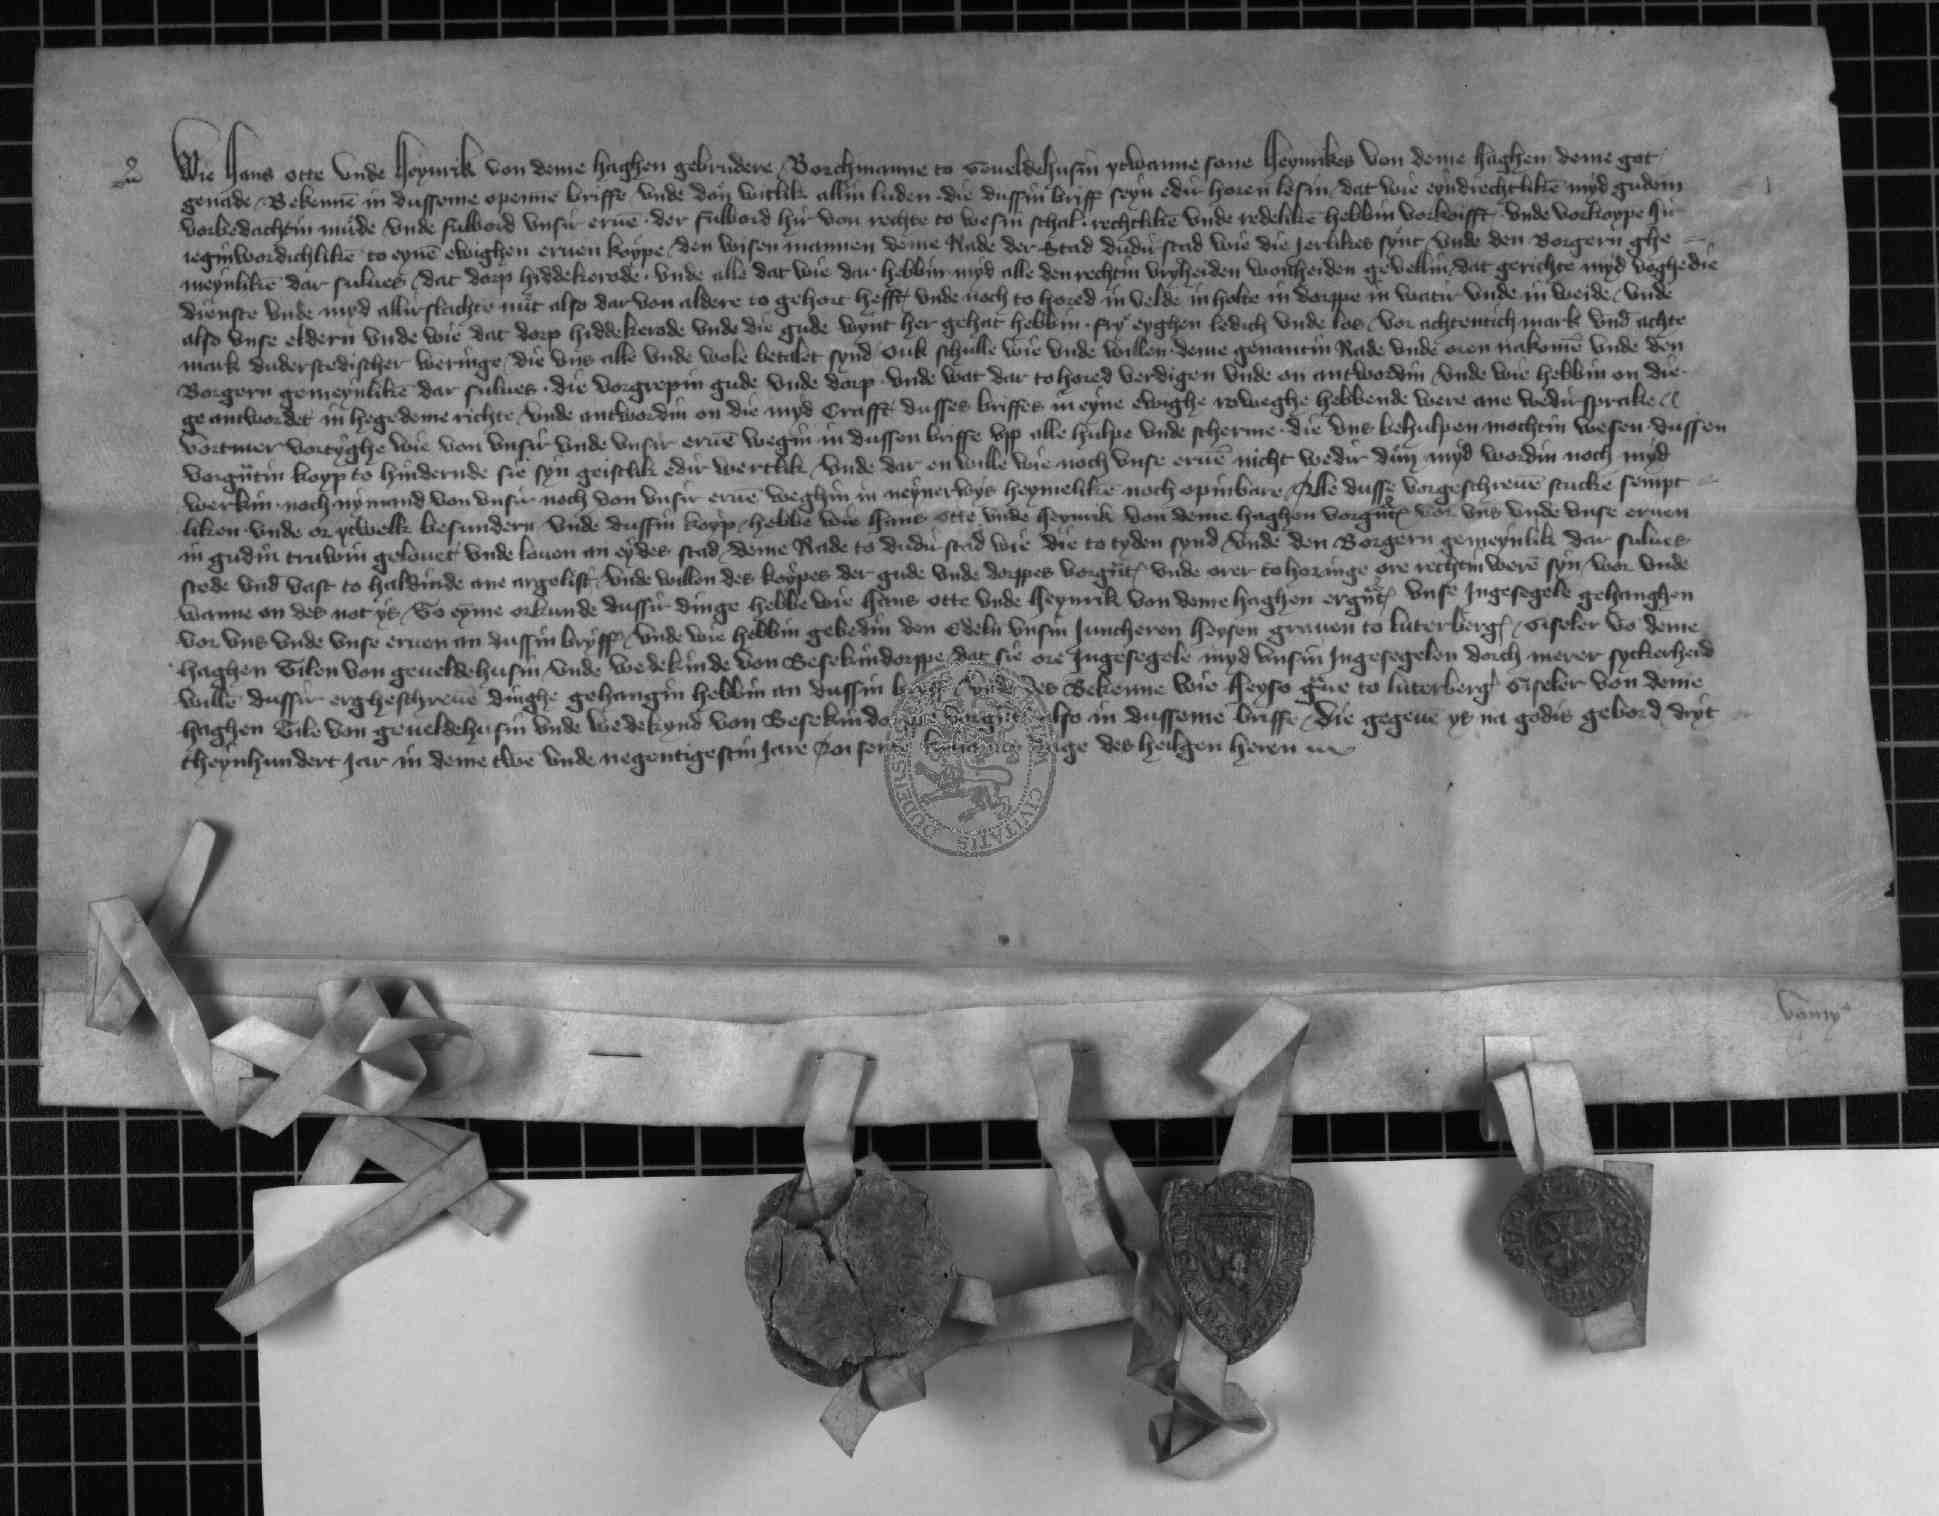 Wie Hans otte vnde Heynrik von deme haghen gebrudere / Borchmanne to Geueldehusin ytwanne sone Heynrikes von deme haghen deme got
genade / Bekennē in dusseme openne briffe / vnde don witlik allin luden · die dussin briff seyn edir horen lesin / dat wie eyndrechtlikē myd gudem
vorbedachtin mude vnde fulbord vnsir eruē · der fulbord hir von rechte to wesin schal · rechtlikē vnde redelikē hebbin vorkoifft · vnde vorkoype hir
ieginwordichlikē to eynē ewighen eruen koype / den wisen mannen deme Rade der Stad dudirstad wie die Jerlikes synt / vnde den Borgern ghe
meynlikē dar sulues / dat dorp hiddekerode · vnde alle dat wie dar hebbin myd alle den rechtin vryheiden wonheiden gevellin / dat gerichte myd voghedie
dienste vnde myd allirslachte nüt also dar von aldere to gehort hefft vnde noch to hored in velde in holte in dorppe in watir vnde in weide / vnde
also vnse eldern vnde wie dat dorp hiddekerode vnde die gude wynt her gehat hebbin · fry eyghen ledich vnde los / vor achtentich mark vnd achte
mark duderstedischer weringe / die vns alle vnde wole betalet synd / Ouk schulle wie vnde willen deme genantin Rade vnde oren nakomē vnde den
Borgern gemeynlikē dar sulues · die vorgrepin gude vnde dorp · vnde wat dar to hored verdigen vnde on antwordin / vnde wie hebbin on die
ge antwordet in hegedeme richte / vnde antwordin on die myd Crafft dusses briffes in eyne ewighe roweghe hebbende were ane wedirsprake
vortmer vortyghe wie von vnsir vnde vnsir eruē wegin in dussen briffe vp alle hulpe vnde scherme · die vns behulpen mochtin wesen dussen
vorgūtin koyp to hindernde sie syn geistlik edir wertlik / vnde dar en wille wie noch vnse eruē nicht wedir dun myd wordin noch myd
werkin · noch nymand von vnsir noch von vnsir eruē weghin in neynerwys heymelikē noch opinbare / Alle dusse vorgeschreuē stucke sempt
liken vnde or ytwelk besundern vnde dussin koyp / hebbe wie Hans otte vnde Heynrik von deme haghen vorgūt vor vns vnde vnse eruen
in gudin truwin gelouet vnde louen an eydes stad / deme Rade to dudirstad wie die to tyden synd / vnde den Borgern gemeynlik dar sulues
stede vnd vast to haldinde ane argelist / vnde willen des koypes der gude vnde dorppes vorgūt vnde orer to horinge ore rechtin werē syn / wor vnde
wanne on des not ys / To eyme orkunde dussir dinge hebbe wie Hans otte vnde Heynrik von deme haghen ergūt vnse Ingesegele gehanghen
vor vns vnde vnse eruen an dussin bryff / vnde wie hebbin gebedin den Edeln vnsin Juncheren Heysen grauen to luterberg / Giseler vō deme
haghen Tilen von geueldehusin / vnde wedekinde von Besekindorppe / dat sie ore Ingesegele myd vnsin Ingesegelen dorch merer syckerheid
willē dussir ergheschreuē dinghe gehangin hebbin an dussin briff / vnde des Bekenne wie Heyso gue to luterberg Giseler von deme
haghen Tile von geueldehusin vnde wedekynd von Besekindorppe vorgūt also in dusseme briffe / Die gegeuē ys na godis gebord dryt
theynhundert Jar in deme twe vnde negentigestin Jare dage des heilgen heren